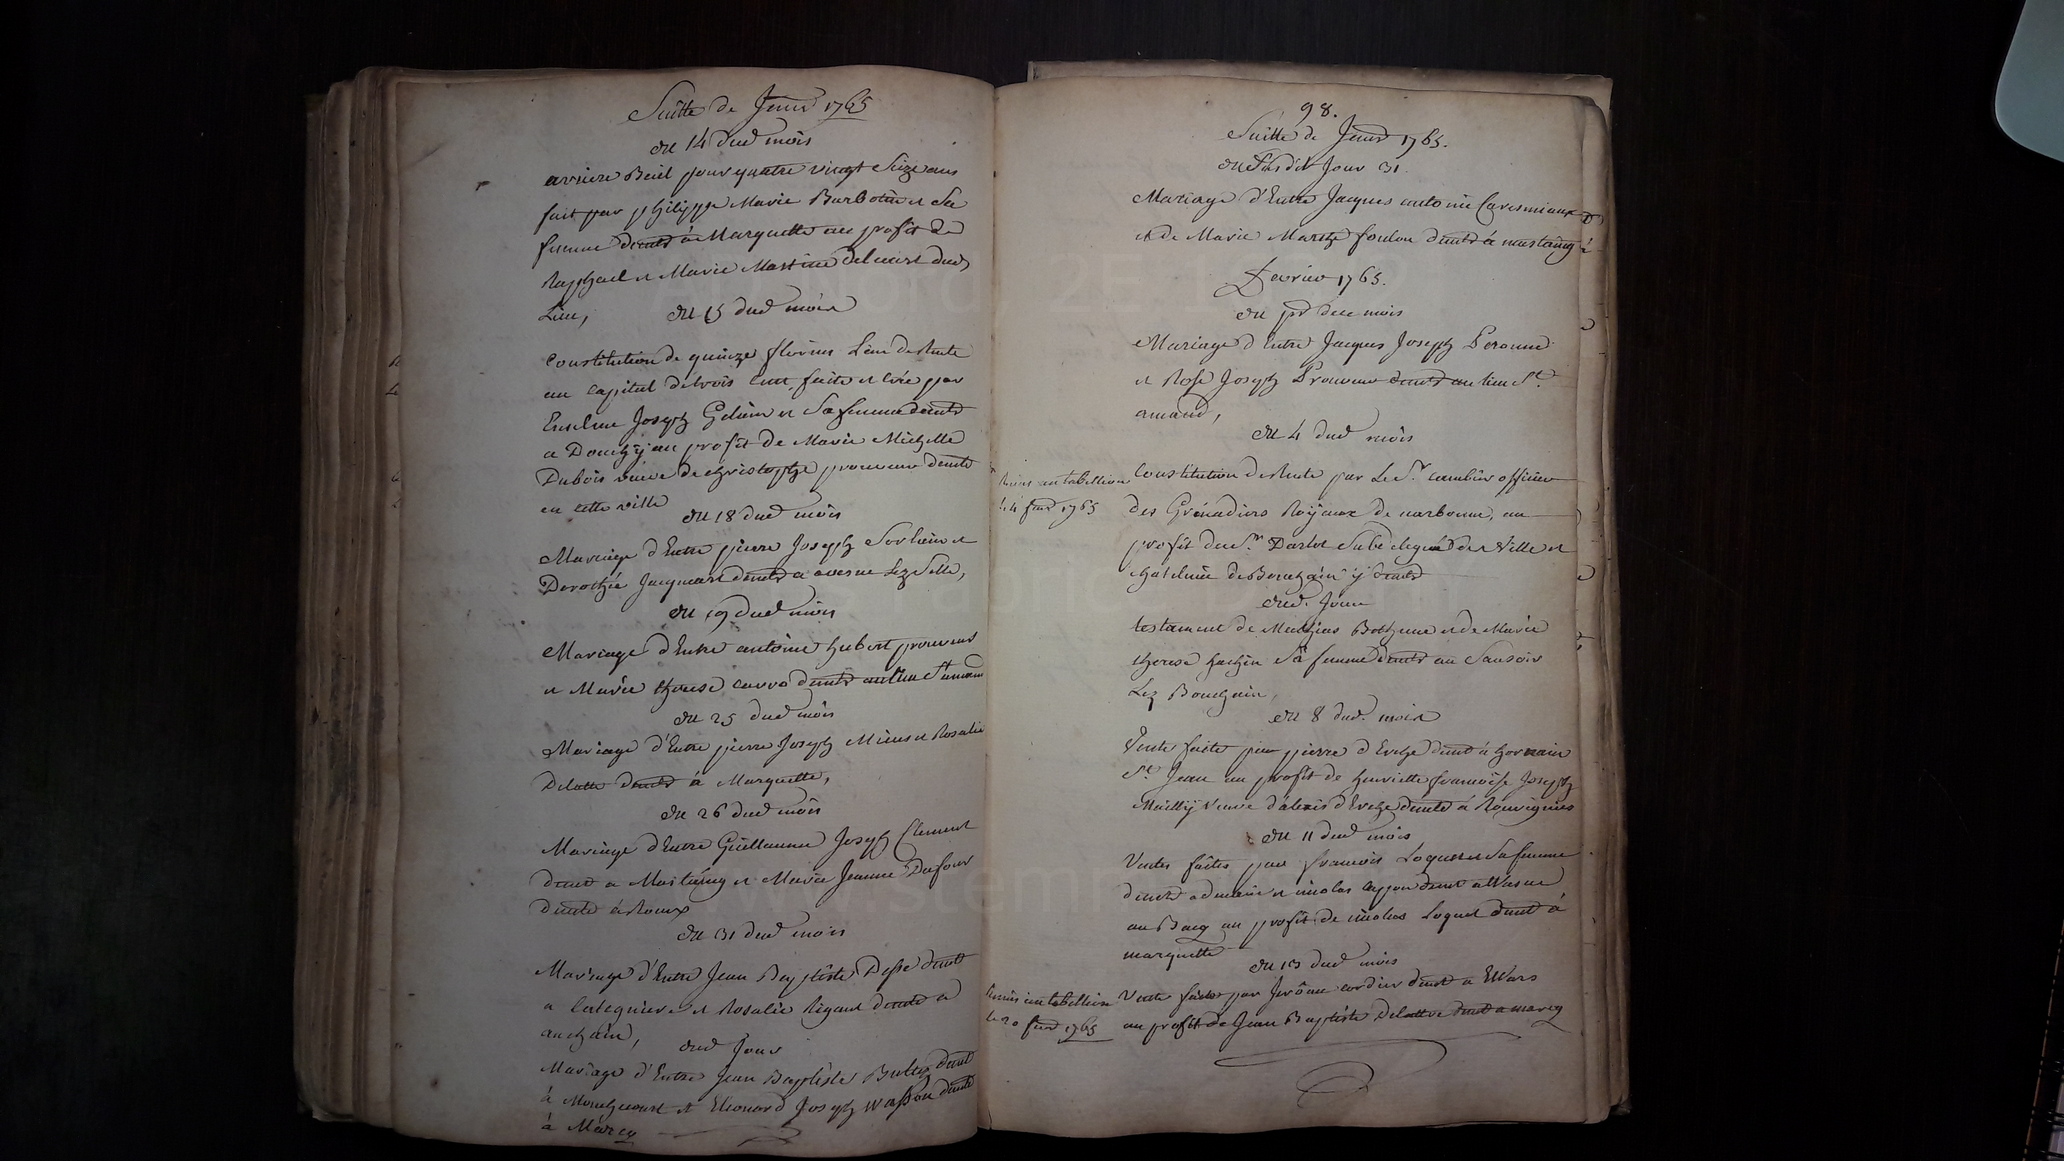 Suitte de Janvr 1765
du 14 dud mois
arriere Bail pour quatre vingt Seize ans
fait par philippe Marie Barbotin et Sa
femme demts à Marquette au profit de
Raphael et Marie Martine Delecourt dud
Lieu,
du 15 dud mois
Constitution de quinze florins L'an de Rente
au capital de trois cent, faite et crée par
Enselme Joseph et Sa femme demts
a Douchÿ au profit de Marie Michelle
Dubois veuve de christophe prouveur demte
en cette ville
du 18 dud mois
Mariage d'Entre pierre Joseph Sorlain et
Dorothée Jacquart demts a avesne Lez Selle,
du 19 dud mois
Mariage d'Entre antoine hubert prouveur
et Marie therese carra demts au lieu St amand
du 25 dud mois
Mariage d'Entre pierre Joseph et Rosalie
Delatte demts à Marquette,
du 26 dud mois
Mariage d'Entre Guillaume Joseph Clement
demt a Mastaing et Marie Jeanne Dufour
demte à Roeux
du 31 dud mois
Mariage d'Entre Jean Baptiste demt
a et Rosalie Rigaut demte a
auchain,
dud Jour
Mariage d'Entre Jean Baptiste Bultez demt
à Monchecourt et Eleonard Joseph Wasson demte
à Marcq
98.
Suitte de Janvr 1765.
du Susdit Jour 31
Mariage d'Entre Jacques antoine Caresmiaux
et de Marie Marthe foulon demts à mastaing
Fevrier 1765.
du pr dece mois
Mariage d'Entre Jacques Joseph Peronne
et Rose Joseph Prouveur demts au lieu St.
amand,
du 4 dud mois
Remis au tabellion
le 4 fevr 1765
Constitution de Rente par Le Sr. cambier officier
des Grenadiers Roÿaux de narbonne, au
profit du Sr. Darlot Subdelegué des Ville et
chatelnie de Bouchain ÿ demt
dud. Jour
testament de Mathias Bethune et de Marie
therese hachin Sa femme demts au Sansoir
Lez Bouchain,
du 8 dud. mois
Vente faite par pierre d'Evche demt à hornain
St. Jean au profit de henriette francoise Joseph
Maillÿ veuve d'alexis d'Evche demte à Rouvignies
du 11 dud mois
Ventes faites par francois Loquet et Sa femme
demts a denain et nicolas demt a Wasne
au Bacq au profit de nicolas Loquet demt à
marquette
du 13 dud mois
Remis au tabellion
le 20 fevr 1765
Vente faite par Jerôme cordier demt a EWars
au profit de Jean Baptiste Delattre demt a marcq